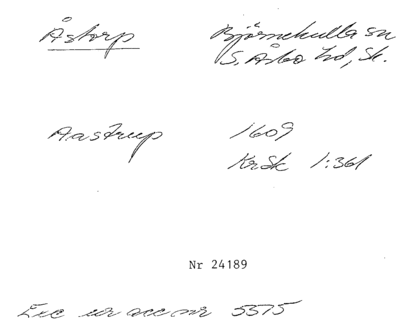 Åstorp Björnekulla sn
S. Åsbo hd, Sk.
Aastrup 1609
KrSk 1:361
Nr 24189
Exc ur acc nr 5575